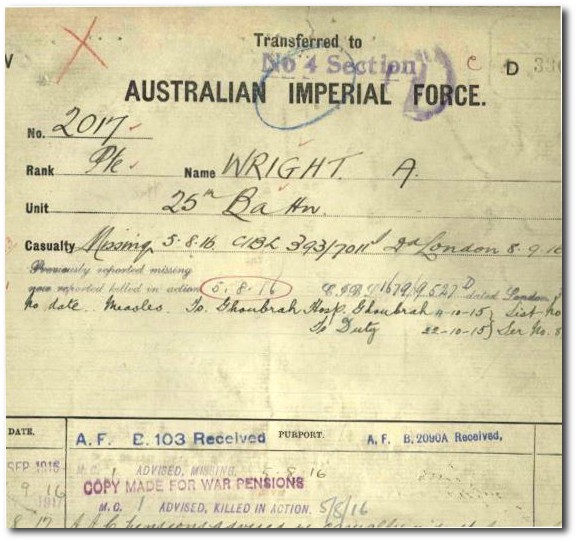 V
Transferred to
No 4 Section
C D 33
AUSTRALIAN IMPERIAL FORCE.
No. 2017
Rank Pte Name WRIGHT. A.
Unit 25th Battn.
Casualty Missing 5.8.16. CIBL 393/7011 London 8.9.16
Previously reported missing
now reported killed in action 5.8.16 dated London
No date. Measles. To. Ghoubrah Hosp. Ghoubrah 4-10-15 List No
To Duty 22-10-15 Ser No. 8
DATE. A. F. B. 103 Received PURPORT. A. F. B. 2090A Received,
SEP 1916 M.C. 1 ADVISED, MISSING. 5.8.16
9 16 COPY MADE FOR WAR PENSIONS
1917 M.C. 1 ADVISED, KILLED IN ACTION. 5/8/16
8.17